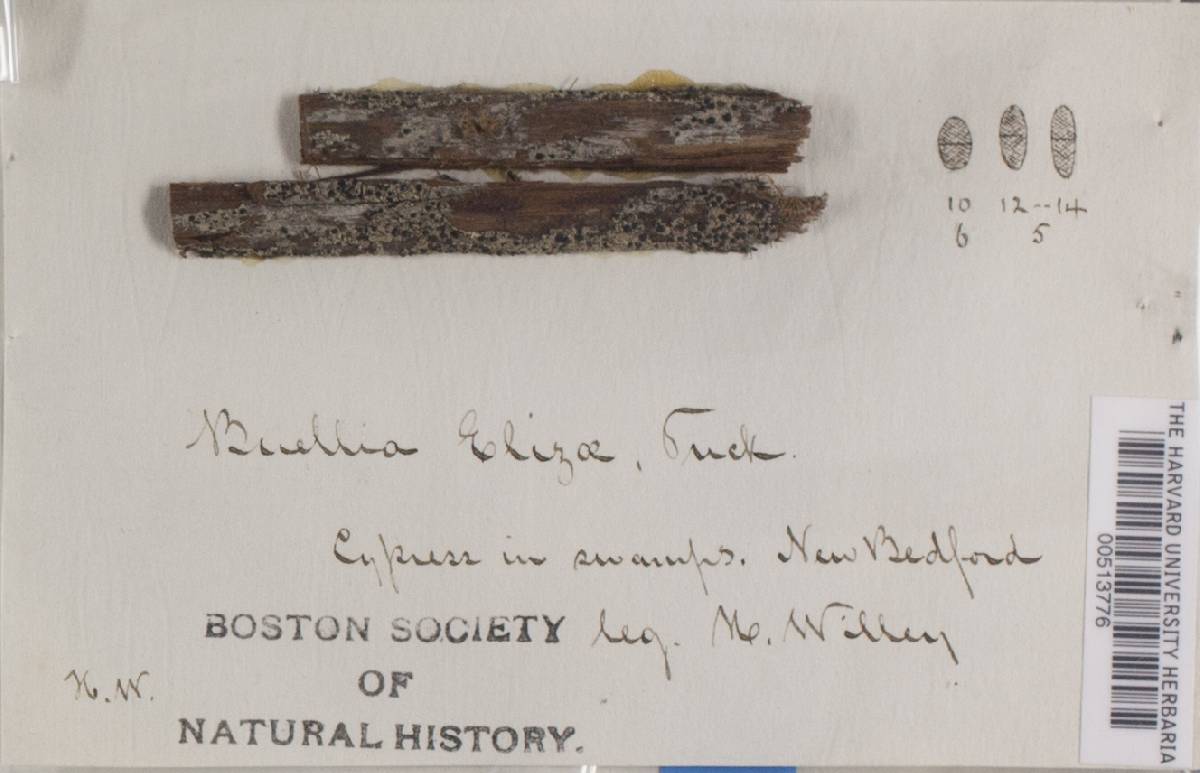 10 12--14
6 5
Buellia Elizæ, Tuck.
Cypress in swamps. New Bedford
leg. H. Willey
BOSTON SOCIETY
OF
NATURAL HISTORY.
H. W.
THE HARVARD UNIVERSITY HERBARIA
00513776